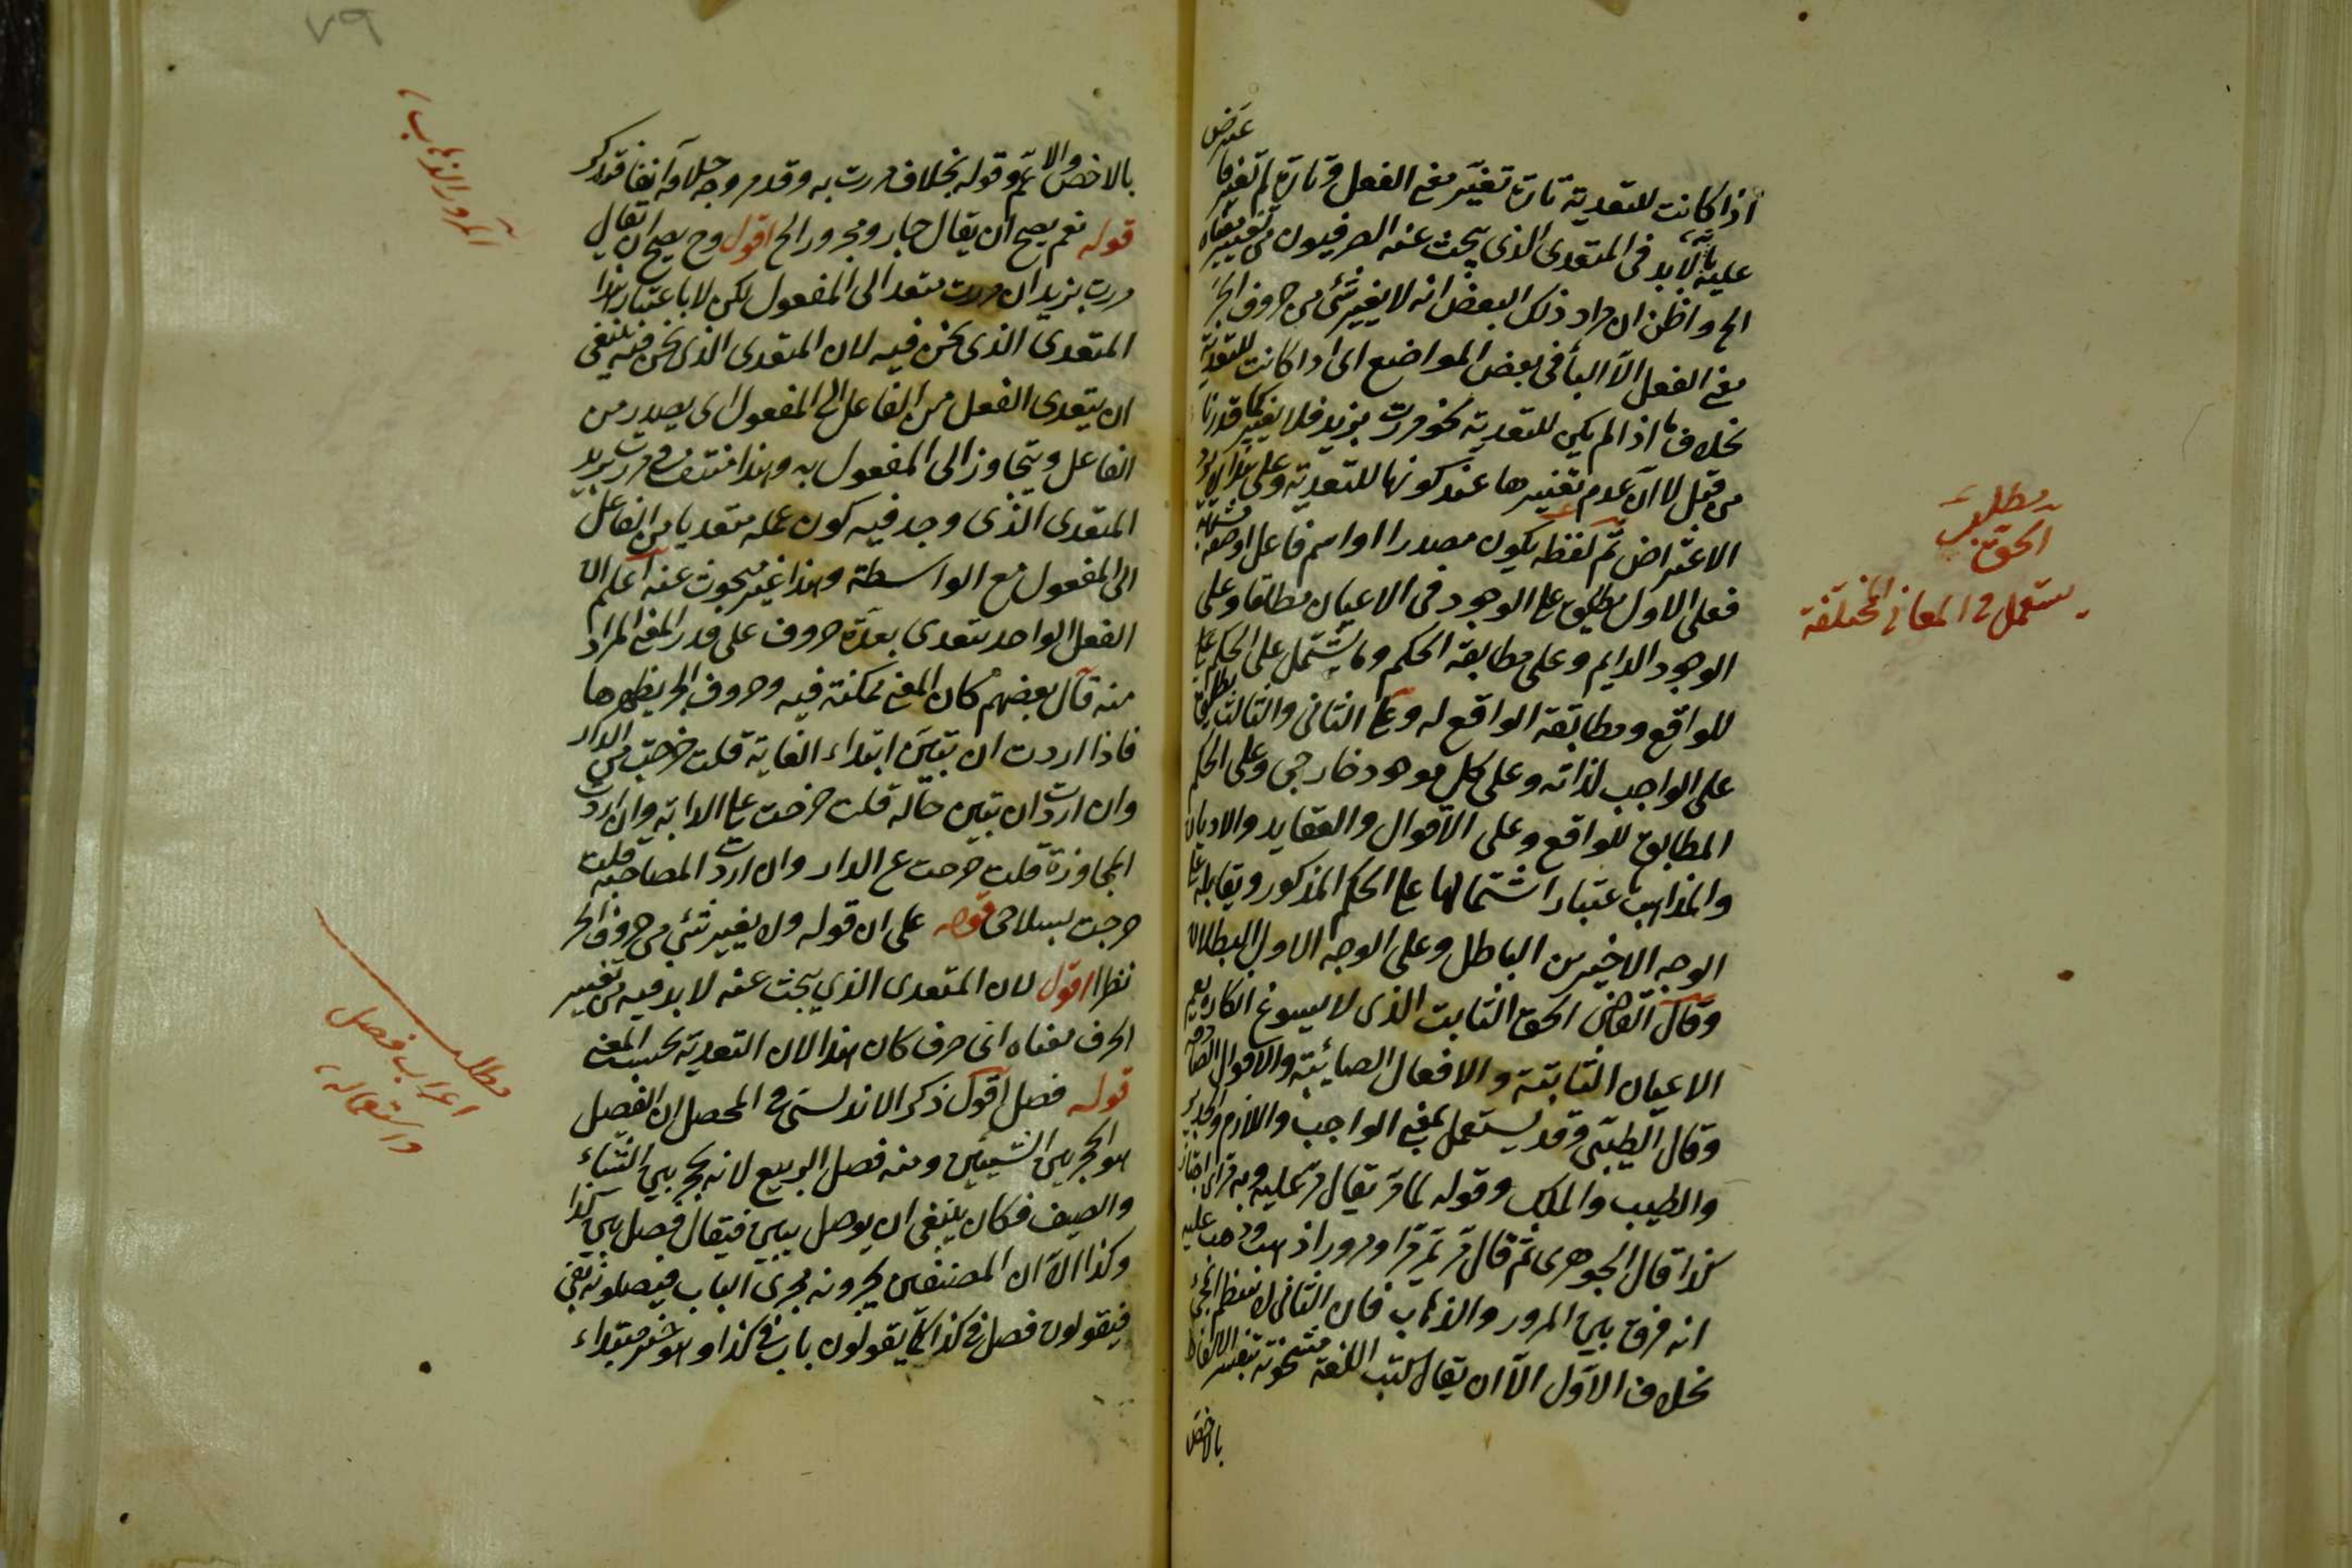 اذا كانت للتعدية تارة تغير معنى الفعل وتارة لم تغير فاعترض
عليه بانه لابد فى المتعدى الذى يبحث عنه الصرفيون من تغيير معناه
الخ واظن ان مراد ذلك البعض انه لا يغير شئ من حروف الجر
معنى الفعل الا الباء فى بعض المواضع اى اذا كانت للتعدية
بخلاف ما اذا لم يكن للتعدية نحو مررت بزيد فلا يغير كما قدرنا
من قبل لا ان عدم تغييرها عند كونها للتعدية وعلى هذا لا يرد
الاعتراض ثم لفظه يكون مصدرا او اسم فاعل او صفة مشبهة
فعلى الاول يطلق على الوجود فى الاعيان مطلقا وعلى
الوجود الدايم وعلى مطابقة الحكم وما يشتمل على الحكم
للواقع ومطابقة الواقع له وعلى الثانى والثالث يطلق
على الواجب لذاته وعلى كل موجود خارجى وعلى الحكم
المطابق للواقع وعلى الاقوال والعقايد والاديان
والمذاهب باعتبار اشتمالها على الحكم المذكور ويقابله على
الوجه الاخيرين الباطل وعلى الوجه الاول البطلان
وقال القاضى الحق الثابت الذى لا يسوغ انكاره يعم
الاعيان الثابتة والافعال الصائبة والاقوال الصادقة
وقال الطيبى وقد يستعمل بمعنى الواجب واللازم والجدير
والطيب والملك وقوله لما مر يقال مر عليه وبه
كذا قال الجوهرى ثم قال مر يمر مرا ومرورا ذهب
انه فرق بين المرور والذهاب فان الثانى
بخلاف الاول الا ان يقال كتب اللغة مشحونة بتفسير الالفاظ
بالاخص
مطلب
الحق
يستعمل فى المعانى المختلفة
٧٩
بالاخص والاعم وقوله بخلاف مررت به وقد مر وجه خلافه انفا فتذكر
قوله نعم يصح ان يقال جار ومجرور الخ اقول وح يصح ان يقال
مررت بزيد ان مررت متعد الى المفعول لكن لا باعتبار هذا
المتعدى الذى نحن فيه لان المتعدى الذى نحن فيه ينبغى
ان يتعدى الفعل من الفاعل الى المفعول اى يصدر من
الفاعل ويتجاوز الى المفعول به وهذا منتف فى مررت بزيد
المتعدى الذى وجد فيه كون عمله متعديا من الفاعل
الى المفعول مع الواسطة وهذا غير مبحوث عنه اعلم ان
الفعل الواحد يتعدى بعدة حروف على قدر المعنى المراد
منه قال بعضهم كان المعنى ممكنة فيه وحروف الجر يظهرها
فاذا اردت ان تبين ابتداء الغاية قلت خرجت من الدار
وان اردت ان تبين حاله قلت خرجت على الدابة وان اردت
المجاوزة قلت خرجت عن الدار وان اردت المصاحبة قلت
خرجت بسلاحى قوله على ان قوله ولا يغير شئ من حروف الجر
نظرا اقول لان المتعدى الذى يبحث عنه لابد فيه من تغيير
الحرف معناه اى حرف كان هذا لان التعدية بحسب المعنى
قوله فصل اقول ذكر الاندلسى فى المحصل ان الفصل
هو الحجر بين الشيئين ومنه فصل الربيع لانه يحجز بين الشتاء
والصيف فكان ينبغى ان يوصل ببين فيقال فصل بين كذا
وكذا الا ان المصنفين يجرونه مجرى الباب فيصلونه بفى
فيقولون فصل فى كذا كما يقولون باب فى كذا وهو خبر مبتداء
المرور والذهاب
مطلب
اعراب فصل
واستعماله